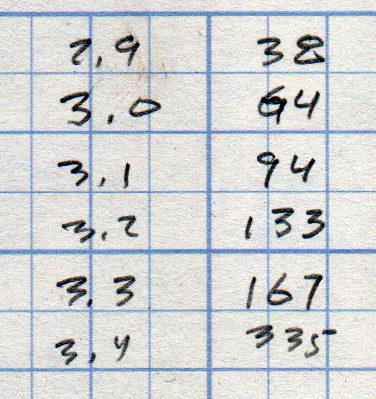 2.9 38
3.0 64
3.1 94
3.2 133
3.3 167
3.4 335